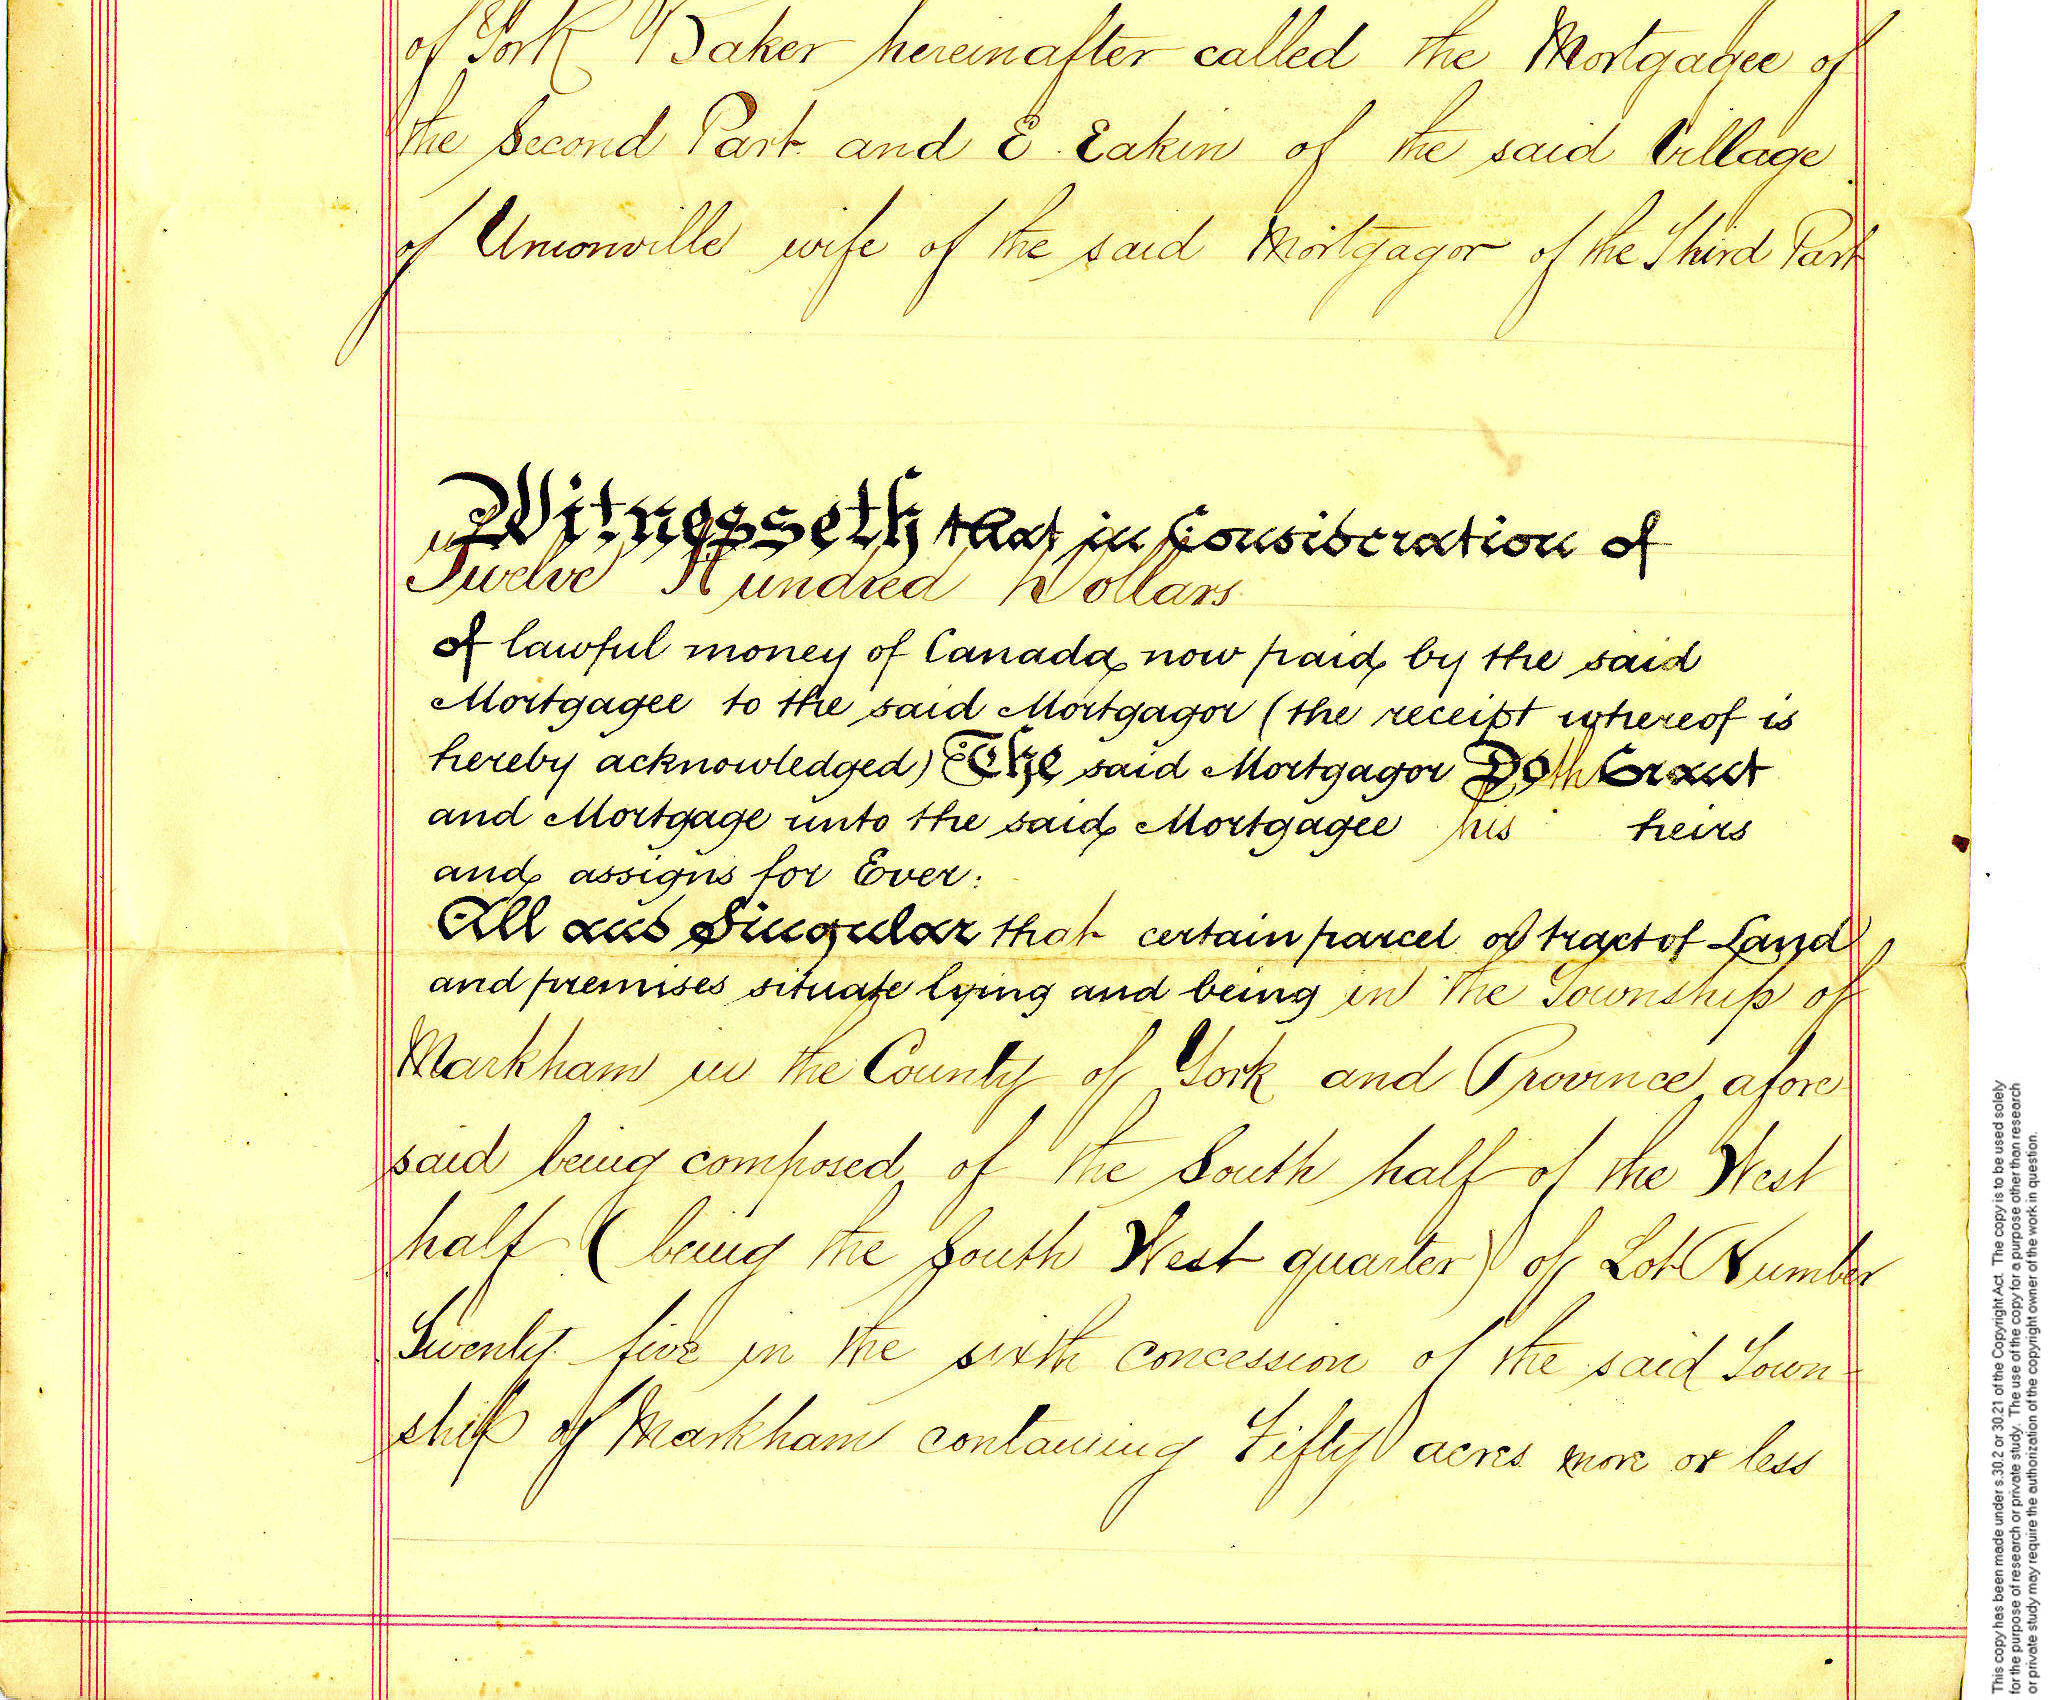 of York Baker hereinafter called the Mortgagee of
the Second Part and E. Eakin of the said Village
of Unionville wife of the said Mortgagor of the Third Part
Witnesseth that in Consideration of
Twelve Hundred Dollars
of lawful money of Canada now paid by the said
Mortgagee to the said Mortgagor (the receipt whereof is
hereby acknowledged) The said Mortgagor Doth Grant
and Mortgage unto the said Mortgagee his heirs
and assigns for Ever:
All and Singular that certain parcel or tract of Land
and premises situate lying and being in the Township of
Markham in the County of York and Province afore
said being composed of the South half of the West
half (being the South West quarter) of Lot Number
Twenty five in the sixth concession of the said Town-
ship of Markham containing Fifty acres more or less
This copy has been made under s.30.2 or 30.21 of the Copyright Act. The copy is to be used solely
for the purpose of research or private study. The use of the copy for a purpose other than research
or private study may require the authorization of the copyright owner of the work in question.